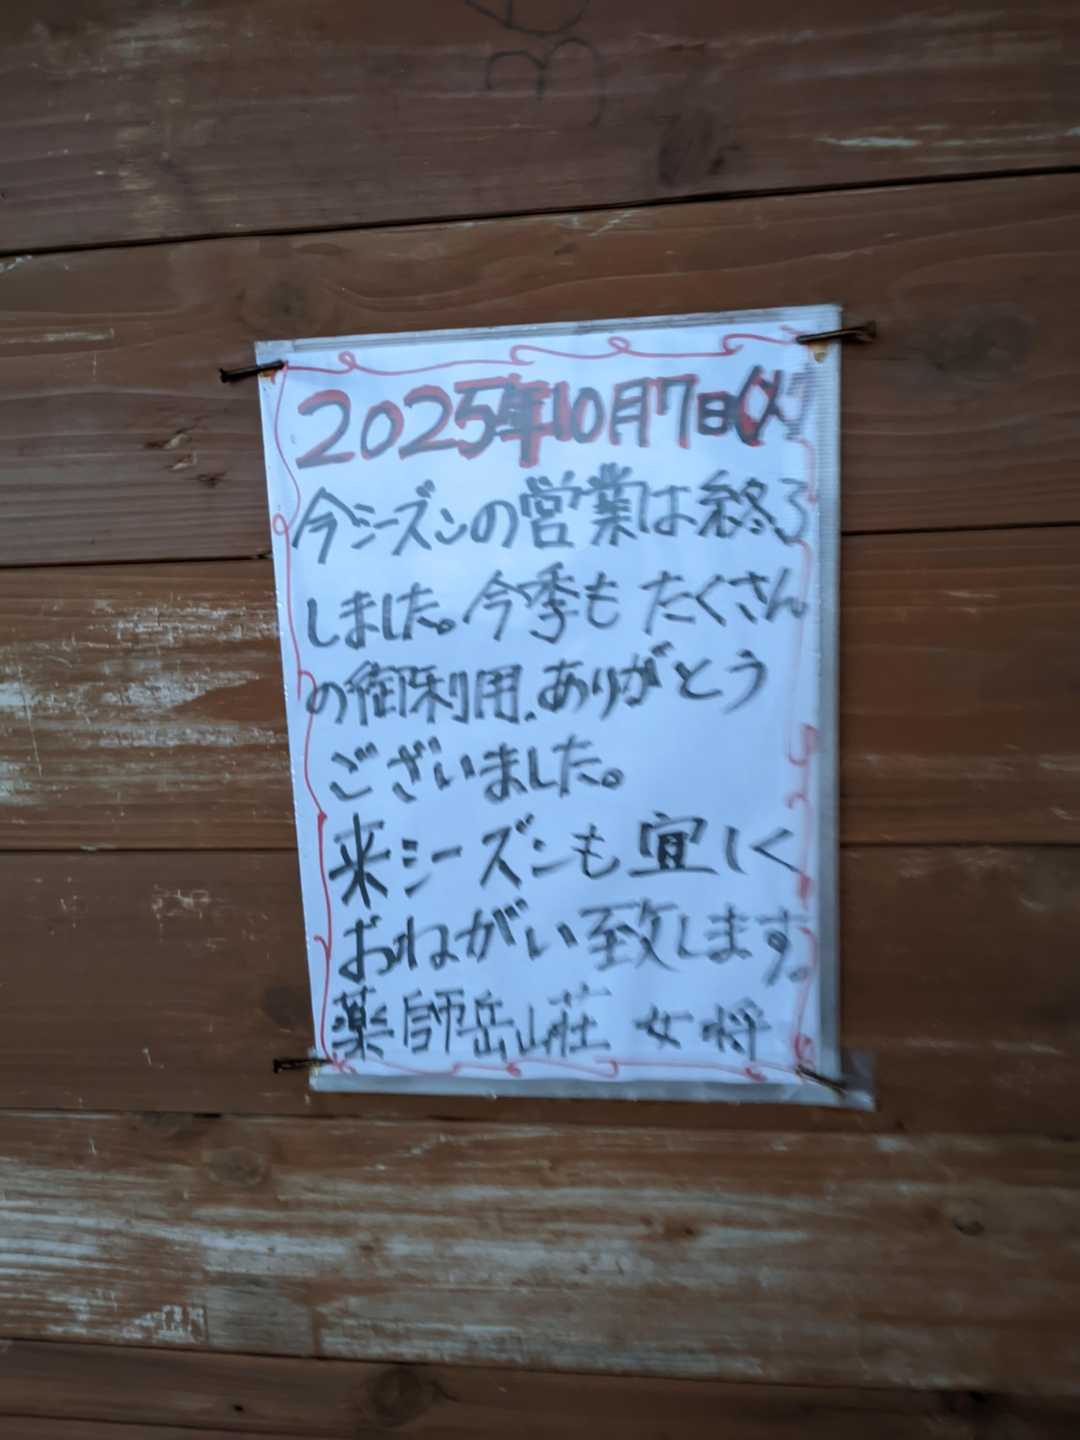 2025年10月7日(火)
今シーズンの営業は終了
しました。今季もたくさん
の御利用、ありがとう
ございました。
来シーズンも宜しく
おねがい致します。
薬師岳山荘 女将